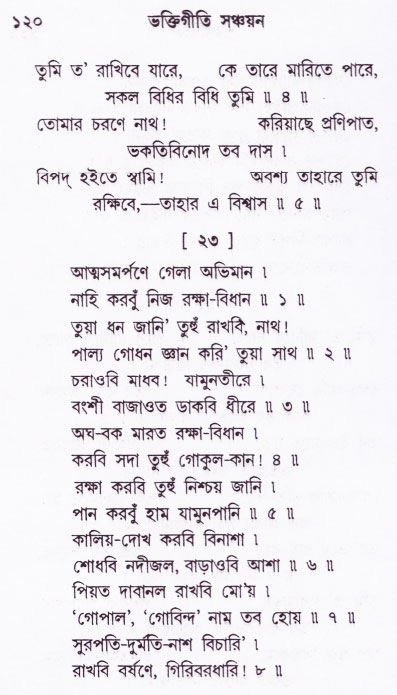 ১২০ ভক্তিগীতি সঞ্চয়ন
তুমি ত’ রাখিবে যারে, কে তারে মারিতে পারে,
সকল বিধির বিধি তুমি ॥ ৪ ॥
তোমার চরণে নাথ! করিয়াছে প্রণিপাত,
ভকতিবিনোদ তব দাস ।
বিপদ্ হইতে স্বামি! অবশ্য তাহারে তুমি
রক্ষিবে,—তাহার এ বিশ্বাস ॥ ৫ ॥
[ ২৩ ]
আত্মসমর্পণে গেলা অভিমান ।
নাহি করবুঁ নিজ রক্ষা-বিধান ॥ ১ ॥
তুয়া ধন জানি’ তুহুঁ রাখবি, নাথ!
পাল্য গোধন জ্ঞান করি’ তুয়া সাথ ॥ ২ ॥
চরাওবি মাধব! যামুনতীরে ।
বংশী বাজাওত ডাকবি ধীরে ॥ ৩ ॥
অঘ-বক মারত রক্ষা-বিধান ।
করবি সদা তুহুঁ গোকুল-কান! ৪ ॥
রক্ষা করবি তুহুঁ নিশ্চয় জানি ।
পান করবুঁ হাম যামুনপানি ॥ ৫ ॥
কালিয়-দোখ করবি বিনাশা ।
শোধবি নদীজল, বাড়াওবি আশা ॥ ৬ ॥
পিয়ত দাবানল রাখবি মো’য় ।
‘গোপাল’, ‘গোবিন্দ’ নাম তব হোয় ॥ ৭ ॥
সুরপতি-দুর্মতি-নাশ বিচারি’ ।
রাখবি বর্ষণে, গিরিবরধারি! ৮ ॥